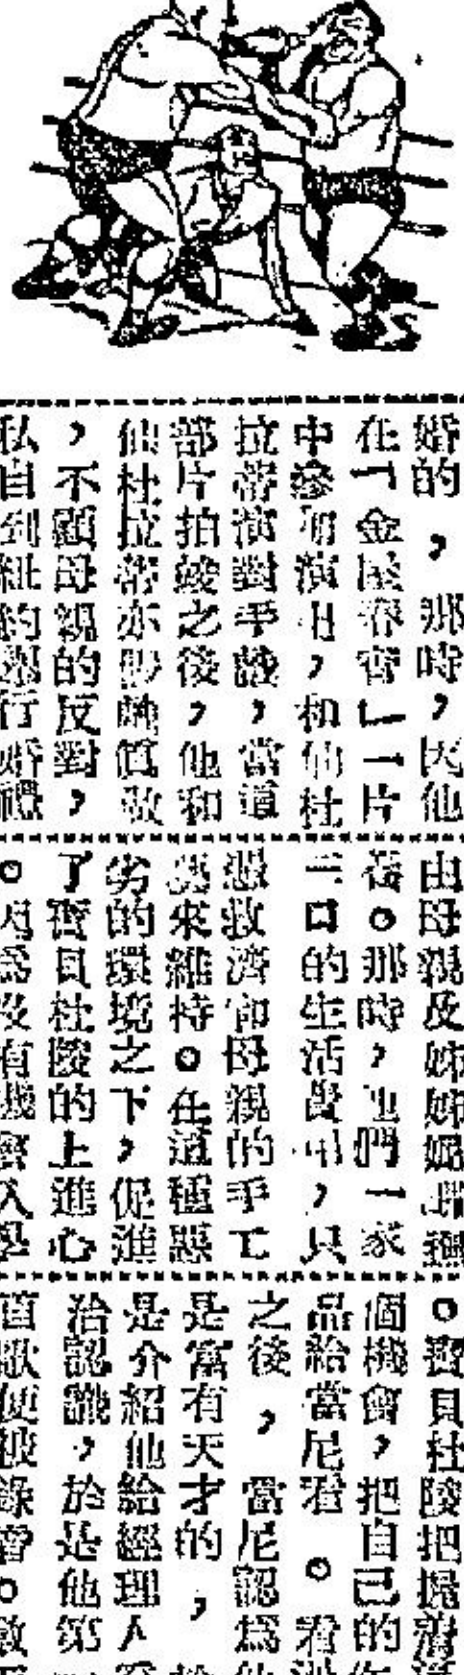 婚的，那時，因他
在「金屋春宵」一片
中參加演出，和仙杜
拉蒂演對手戲，當這
部片拍竣之後，他和
仙杜拉蒂亦
，不顧母親的反對，
私自到紐約舉行婚禮
由母親及姊姊
養。那時，他們一家
三口的生活費用，只
救濟和母親的手工
來維持。在這種惡
劣的環境之下，促進
了寶貝杜陵的上進心
。因為沒有機會入學
。寶貝杜陵把
個機會，把自己的
品給當尼看。看過
之後，當尼認為他
是富有天才的，
是介紹他給經理人
洽認識，於是他第
首歌便被錄音。